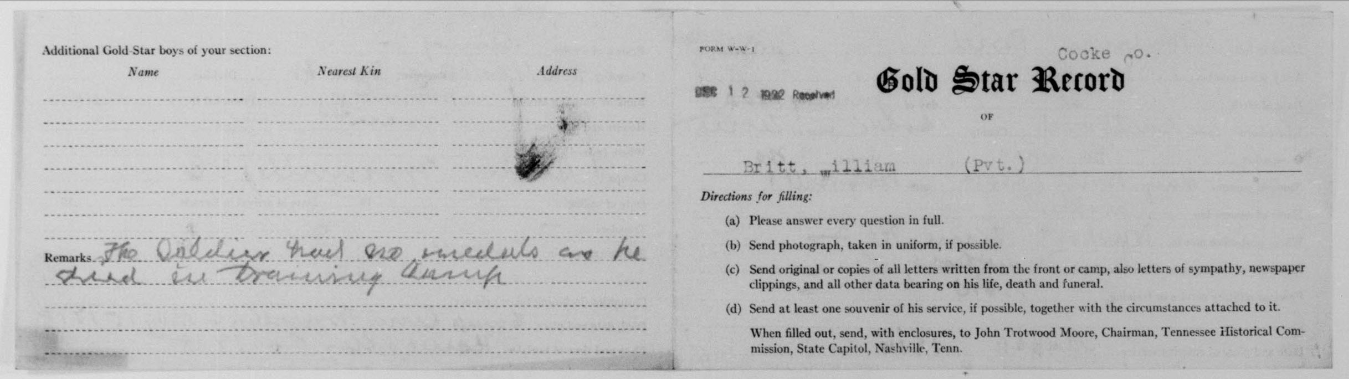 Additional Gold-Star boys of your section:
Name Nearest Kin Address
Remarks. The Soldier had no medals as he
died in training Camp
FORM W-W-1
Cocke Co.
DEC 12 1922 Received
Gold Star Record
OF
Britt, William (Pvt.)
Directions for filling:
(a) Please answer every question in full.
(b) Send photograph, taken in uniform, if possible.
(c) Send original or copies of all letters written from the front or camp, also letters of sympathy, newspaper
clippings, and all other data bearing on his life, death and funeral.
(d) Send at least one souvenir of his service, if possible, together with the circumstances attached to it.
When filled out, send, with enclosures, to John Trotwood Moore, Chairman, Tennessee Historical Com-
mission, State Capitol, Nashville, Tenn.